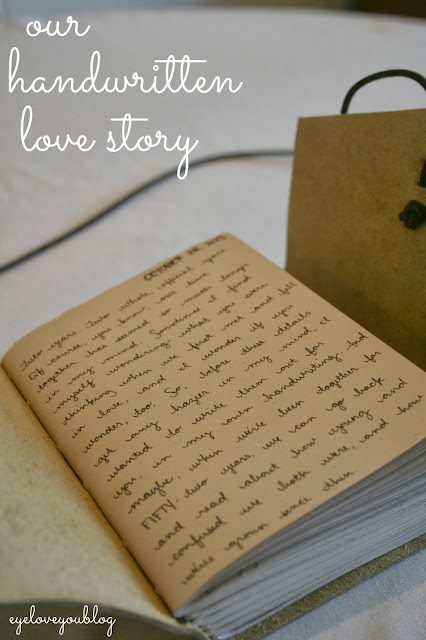 our
handwritten
love story
OCTOBER 28, 2013
Two years. Two whole, official years.
Of course, you know, our time
together has seemed so much longer
in my mind. Sometimes I find
myself wondering what you were
thinking when we first met and fell
in love, and I wonder if you
wonder, too. So, before these details
get any hazier in my mind, I
wanted to write them out for
you, in my own handwriting. And
maybe, when we've been together for
FIFTY-two years, we can go back
and read about how young and
confused we both were, and how
we've grown since then.
eyeloveyoublog